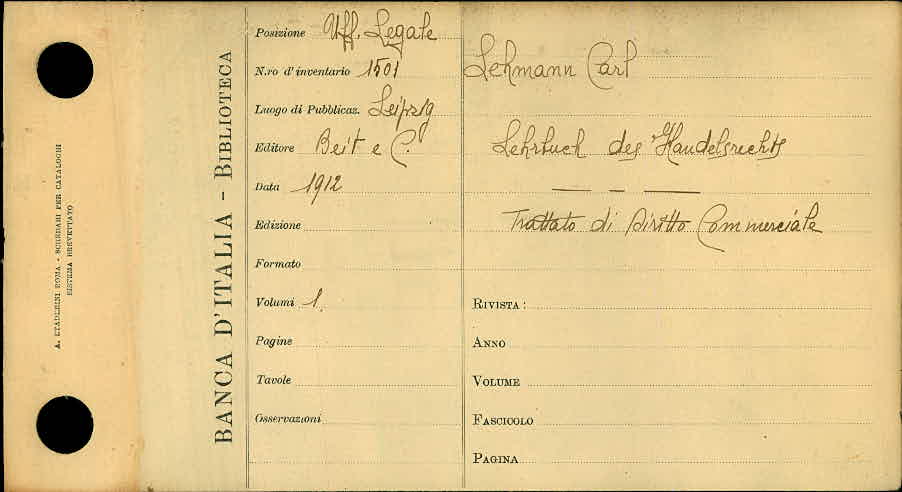 A. STADERINI ROMA - SCHEDARI PER CATALOGHI
SISTEMA BREVETTATO
BANCA D'ITALIA - BIBLIOTECA
Posizione Uff. Legale
N.ro d'inventario 1501
Luogo di Pubblicaz. Leipzig
Editore Beit e C.
Data 1912
Edizione
Formato
Volumi 1
Pagine
Tavole
Osservazioni
Lehmann Carl
Lehrbuch des Handelsrechts
Trattato di Diritto Commerciale
RIVISTA :
ANNO
VOLUME
FASCICOLO
PAGINA